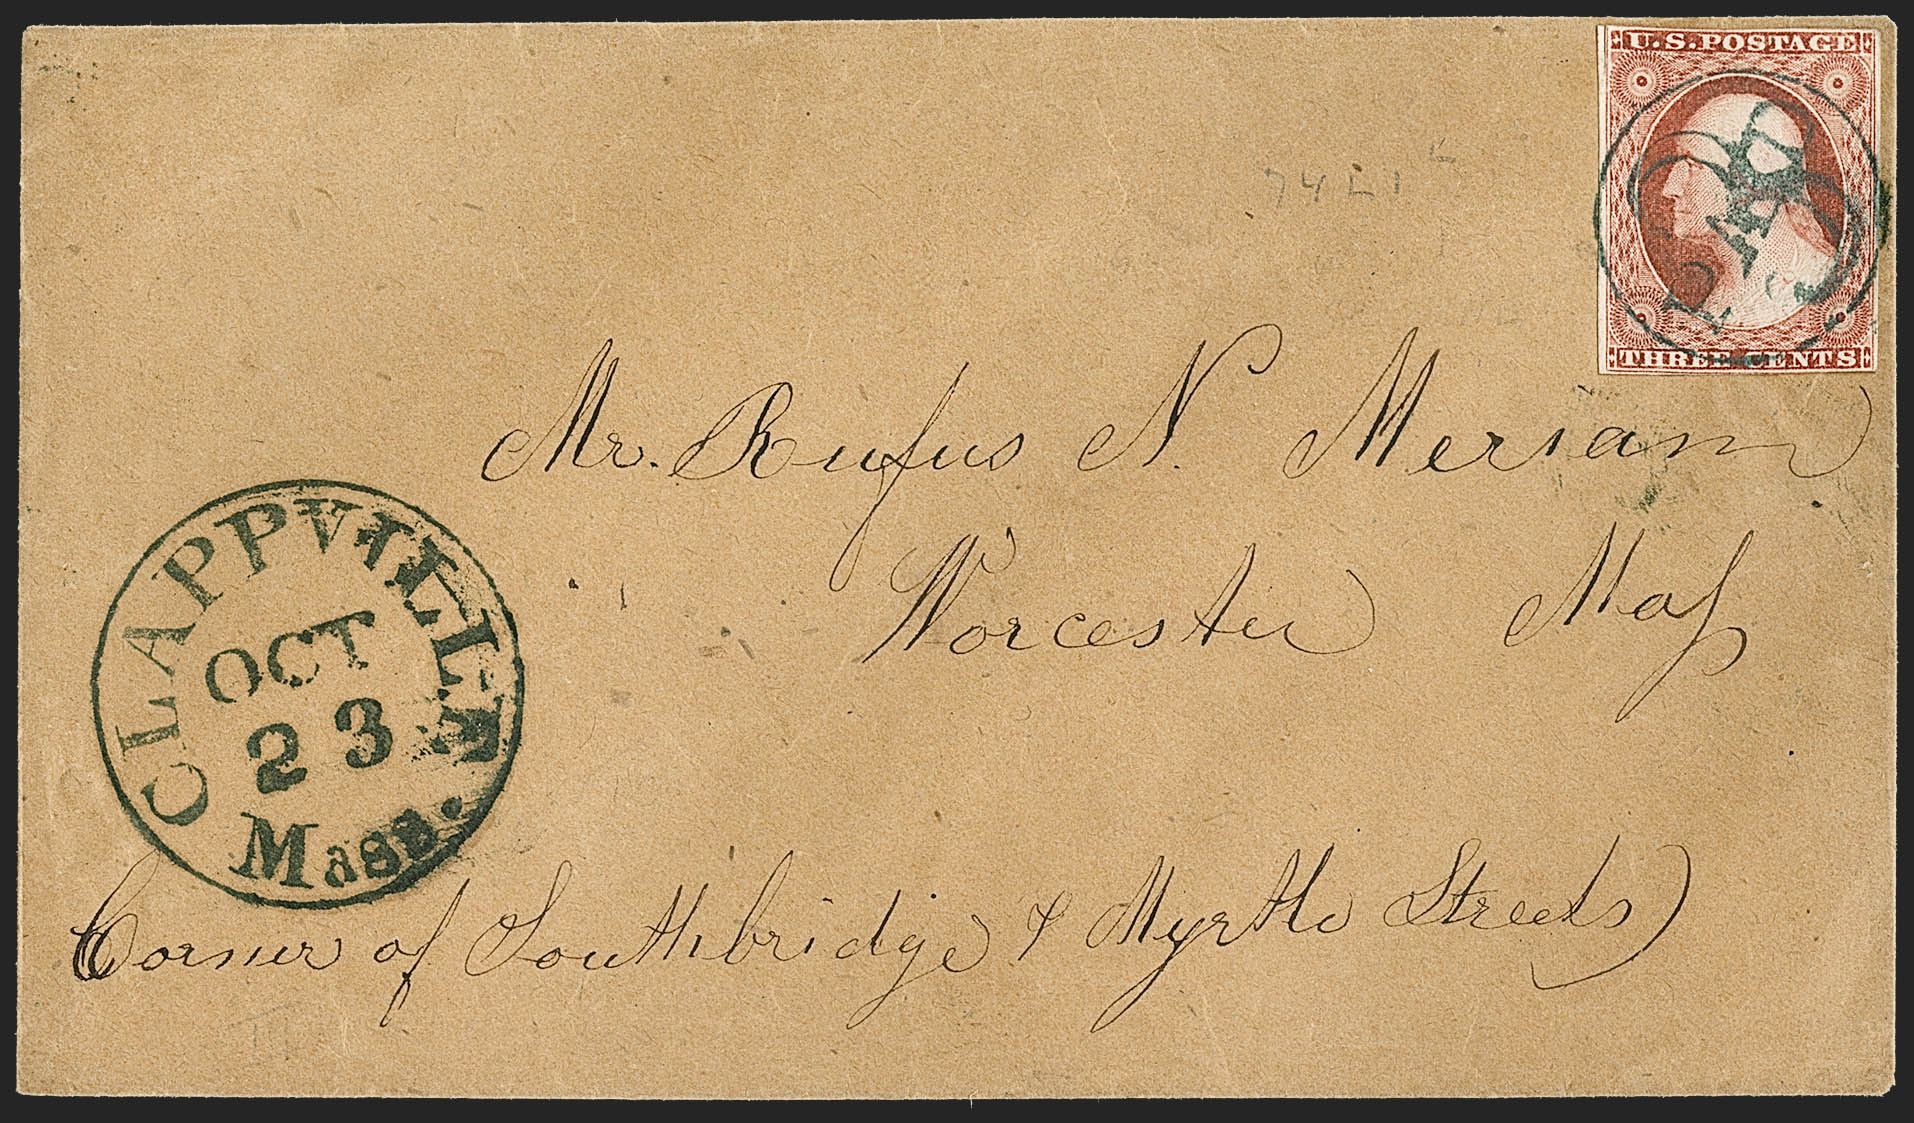 U.S. POSTAGE
PAID
3
THREE CENTS
74 L 1 L
Mr. Rufus N. Meriam
Worcester Mass
CLAPPVILLE
OCT
23
Mass.
Corner of Southbridge & Myrtle Streets